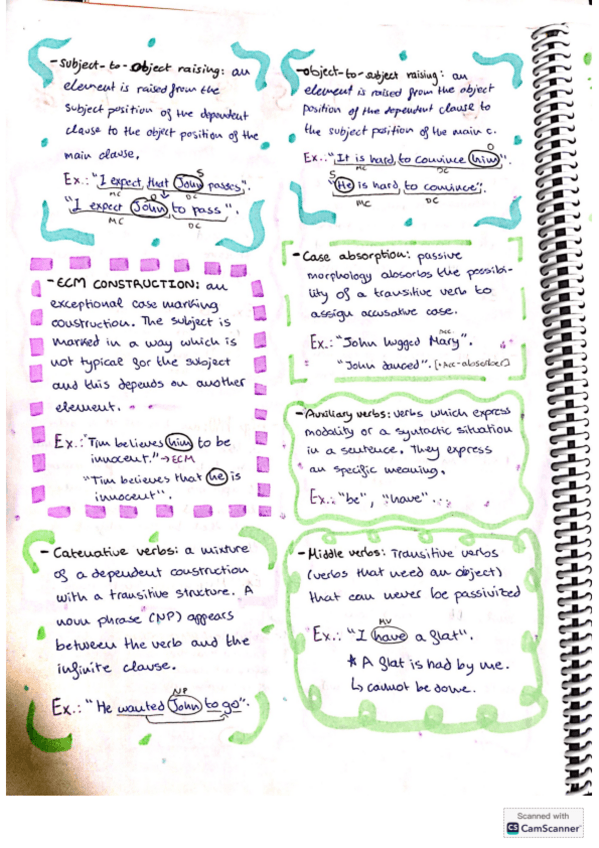 - Subject-to-object raising: an
element is raised from the
subject position of the dependent
clause to the object position of the
main clause.
S
Ex.: "I expect that John passes".
MC DC
O
"I expect John to pass".
MC DC
- Object-to-subject raising: an
element is raised from the object
position of the dependent clause to
the subject position of the main c.
O
Ex.: "It is hard to convince him".
MC DC
S
"He is hard to convince".
MC DC
- ECM CONSTRUCTION: an
exceptional case marking
construction. The subject is
marked in a way which is
not typical for the subject
and this depends on another
element.
Ex.: "Tim believes him to be
innocent." → ECM
"Tim believes that he is
innocent".
- Case absorption: passive
morphology absorbs the possibi-
lity of a transitive verb to
assign accusative case.
Acc.
Ex.: "John hugged Mary".
"John danced". [+Acc-absorber]
- Auxiliary verbs: verbs which express
modality or a syntactic situation
in a sentence. They express
an specific meaning.
Ex.: "be", "have"...
- Catenative verbs: a mixture
of a dependent construction
with a transitive structure. A
noun phrase (NP) appears
between the verb and the
infinite clause.
NP
Ex.: "He wanted John to go".
- Middle verbs: Transitive verbs
(verbs that need an object)
that can never be passivized
MV
Ex.: "I have a flat".
* A flat is had by me.
↳ cannot be done.
Scanned with
CS CamScanner